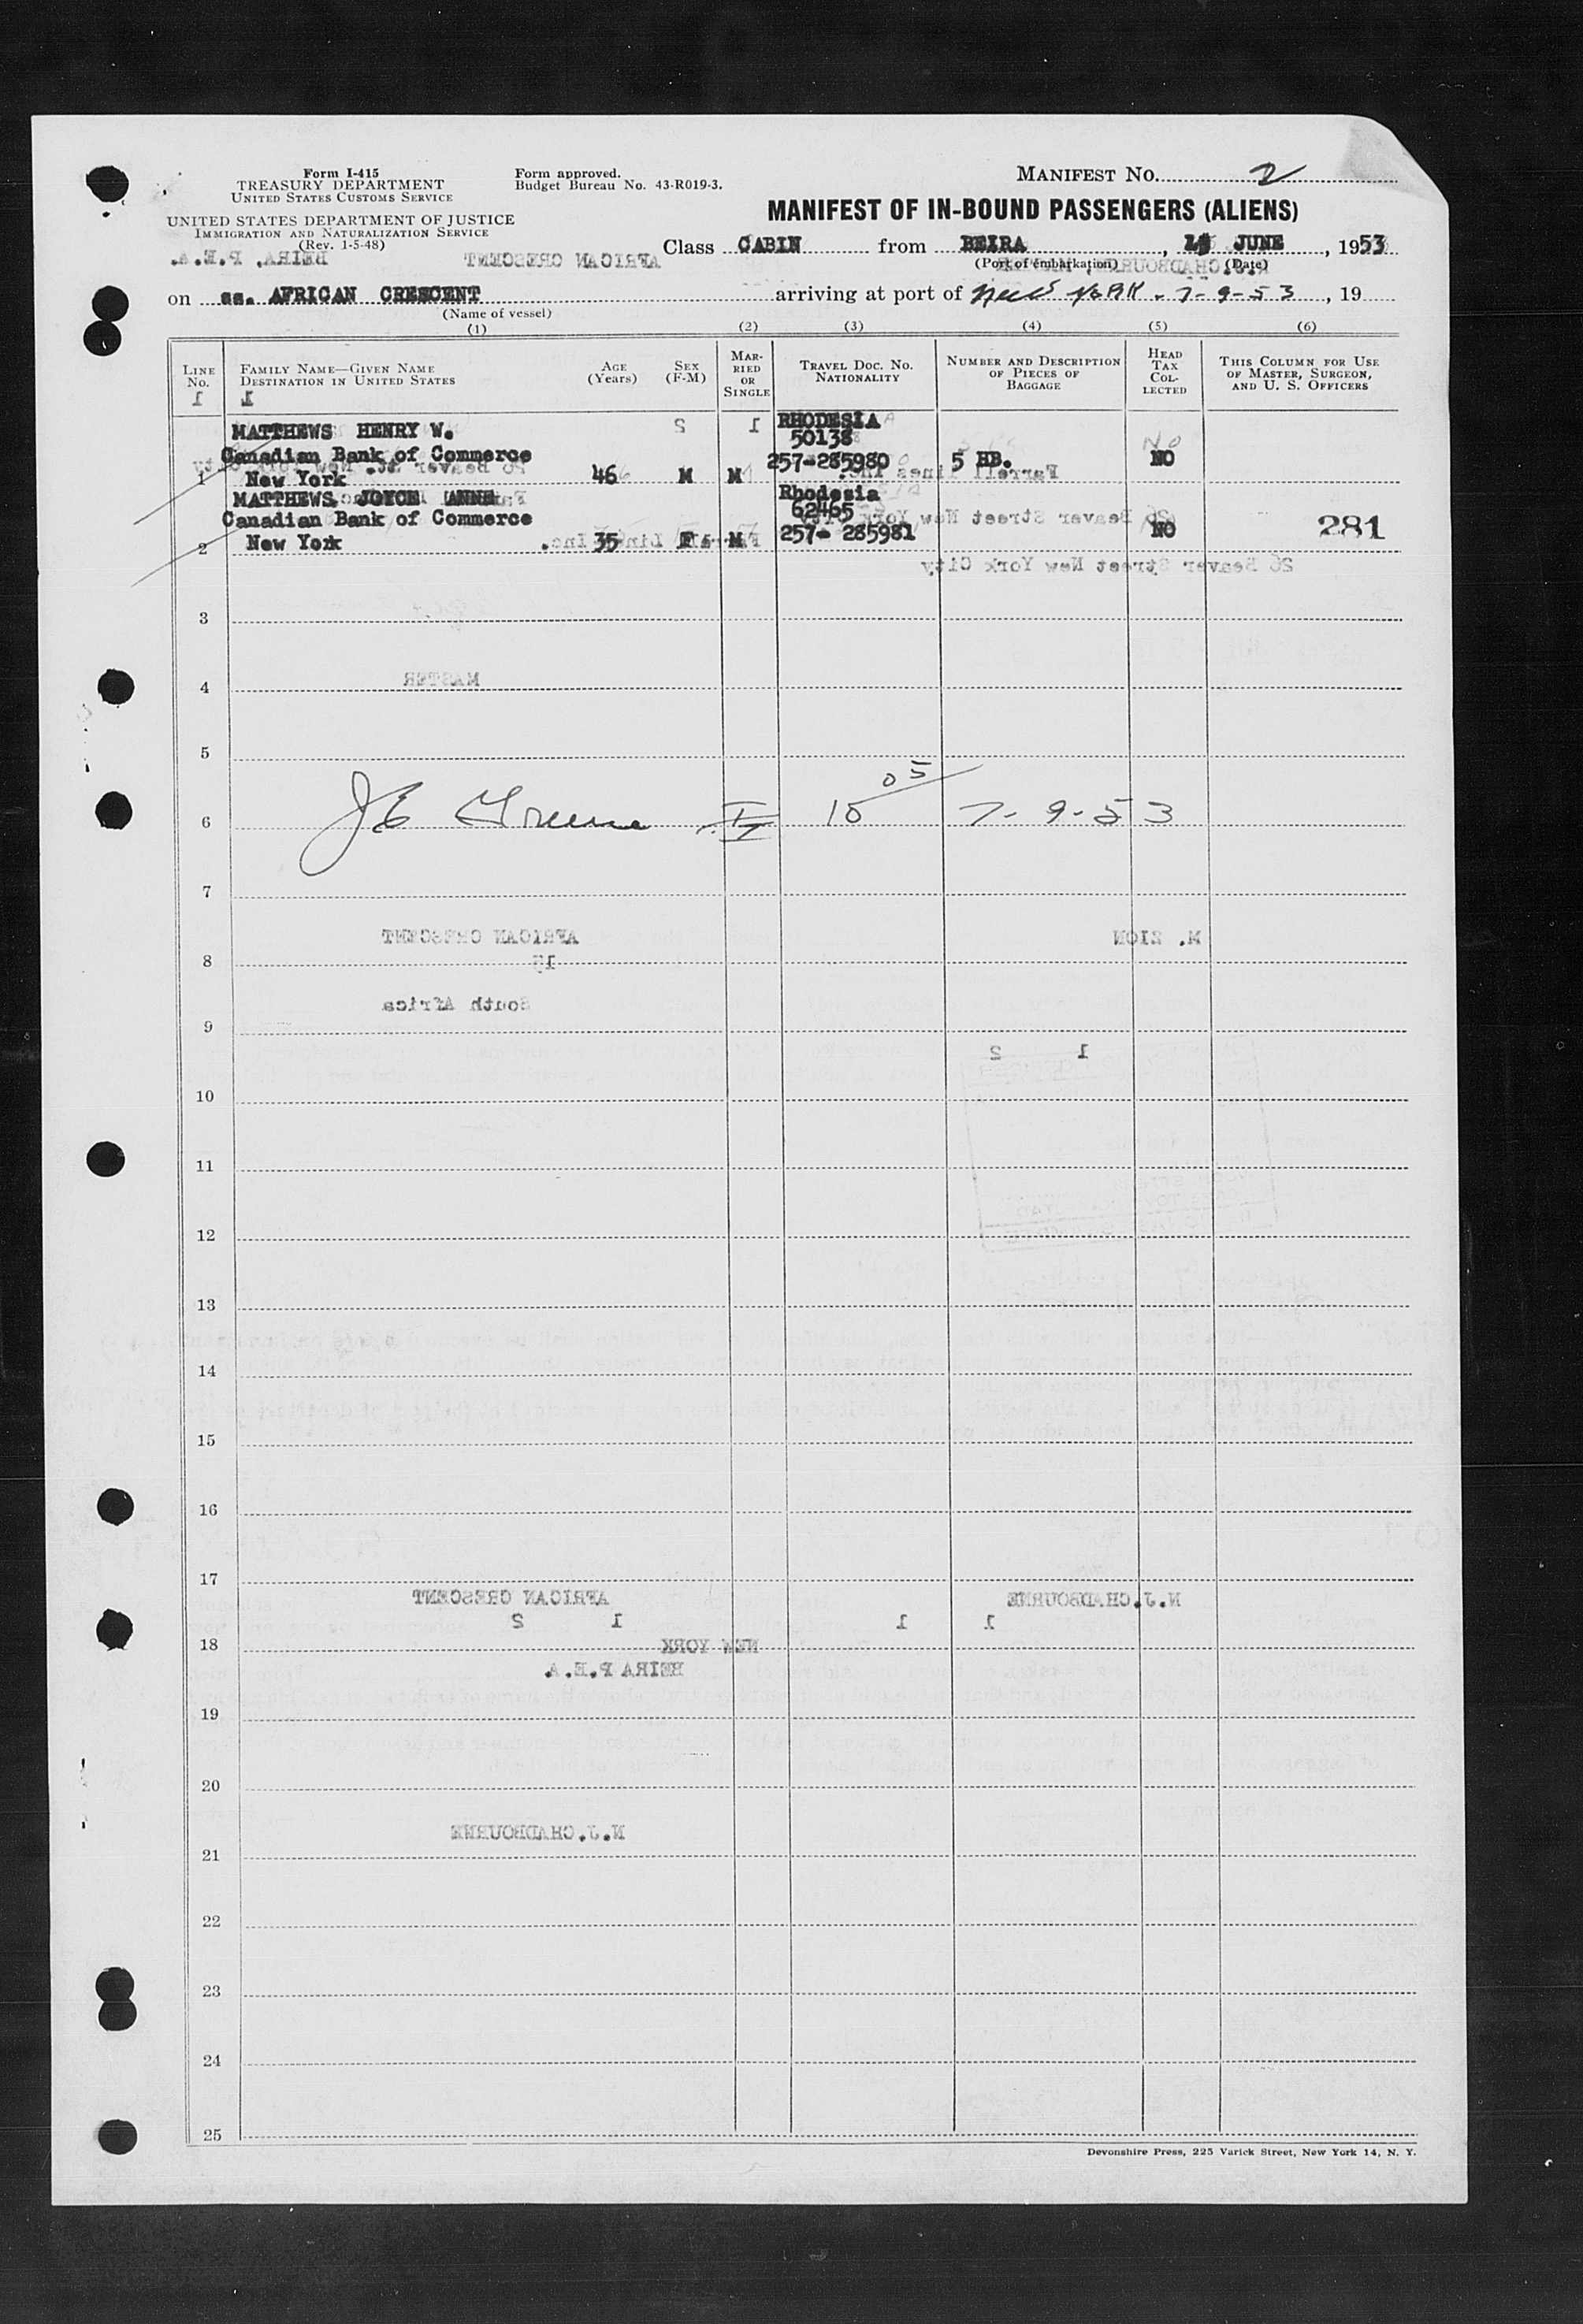 Form I-415
TREASURY DEPARTMENT
UNITED STATES CUSTOMS SERVICE
UNITED STATES DEPARTMENT OF JUSTICE
IMMIGRATION AND NATURALIZATION SERVICE
(Rev. 1-5-48)
Form approved.
Budget Bureau No. 43-R019-3.
MANIFEST NO. 2
MANIFEST OF IN-BOUND PASSENGERS (ALIENS)
Class CABIN from BEIRA, JUNE, 1953
(Port of embarkation) (Date)
on ss. AFRICAN CRESCENT arriving at port of New York. 7-9-53, 19
(Name of vessel)
(1) (2) (3) (4) (5) (6)
LINE NO.
FAMILY NAME—GIVEN NAME
DESTINATION IN UNITED STATES
AGE (Years)
SEX (F-M)
MARRIED OR SINGLE
TRAVEL DOC. NO. NATIONALITY
NUMBER AND DESCRIPTION OF PIECES OF BAGGAGE
HEAD TAX COLLECTED
THIS COLUMN FOR USE OF MASTER, SURGEON, AND U. S. OFFICERS
MATTHEWS HENRY W. RHODESIA
50138
Canadian Bank of Commerce 257-285980 5 HB. NO
1 New York 46 M M
MATTHEWS JOYCE ANNE Rhodesia
62465
Canadian Bank of Commerce NO 281
2 New York 35 F M 257- 285981
3
4
5
6 J E Greene 10 05 7-9-53
7
8
9
10
11
12
13
14
15
16
17
18
19
20
21
22
23
24
25
Devonshire Press, 225 Varick Street, New York 14, N. Y.